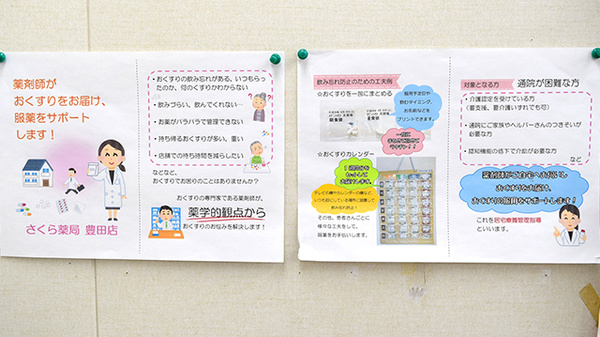 薬剤師が
おくすりをお届け、
服薬をサポート
します!
さくら薬局 豊田店
・おくすりの飲み忘れがある、いつもらっ
たのか、何のくすりかわからない
・飲みづらい、飲んでくれない…
・お薬がバラバラで管理できない
・持ち帰るおくすりが多い、重い
・店頭での待ち時間を減らしたい
などなど、
おくすりでお困りのことはありませんか?
おくすりの専門家である薬剤師が、
薬学的観点から
おくすりのお悩みを解決します!
飲み忘れ防止のための工夫例
☆おくすりを一包にまとめる
服用予定日や
飲むタイミング、
お名前などを
プリントできます。
一包に
☆おくすりカレンダー
1週間分を
セットして
お届けします。
テレビの横やカレンダーの横など、
いつも目にしている場所に設置して
飲み忘れ防止!
その他、患者さんごとに
様々な工夫をして、
服薬をお手伝いします。
対象となる方 通院が困難な方
・介護認定を受けている方
(要支援、要介護いずれでも可)
・通院にご家族やヘルパーさんのつきそいが
必要な方
・認知機能の低下で介助が必要な方
など
薬剤師がご自宅へお伺いし
おくすりをお届け、
おくすりの服用をサポートします!
これを居宅療養管理指導
といいます。